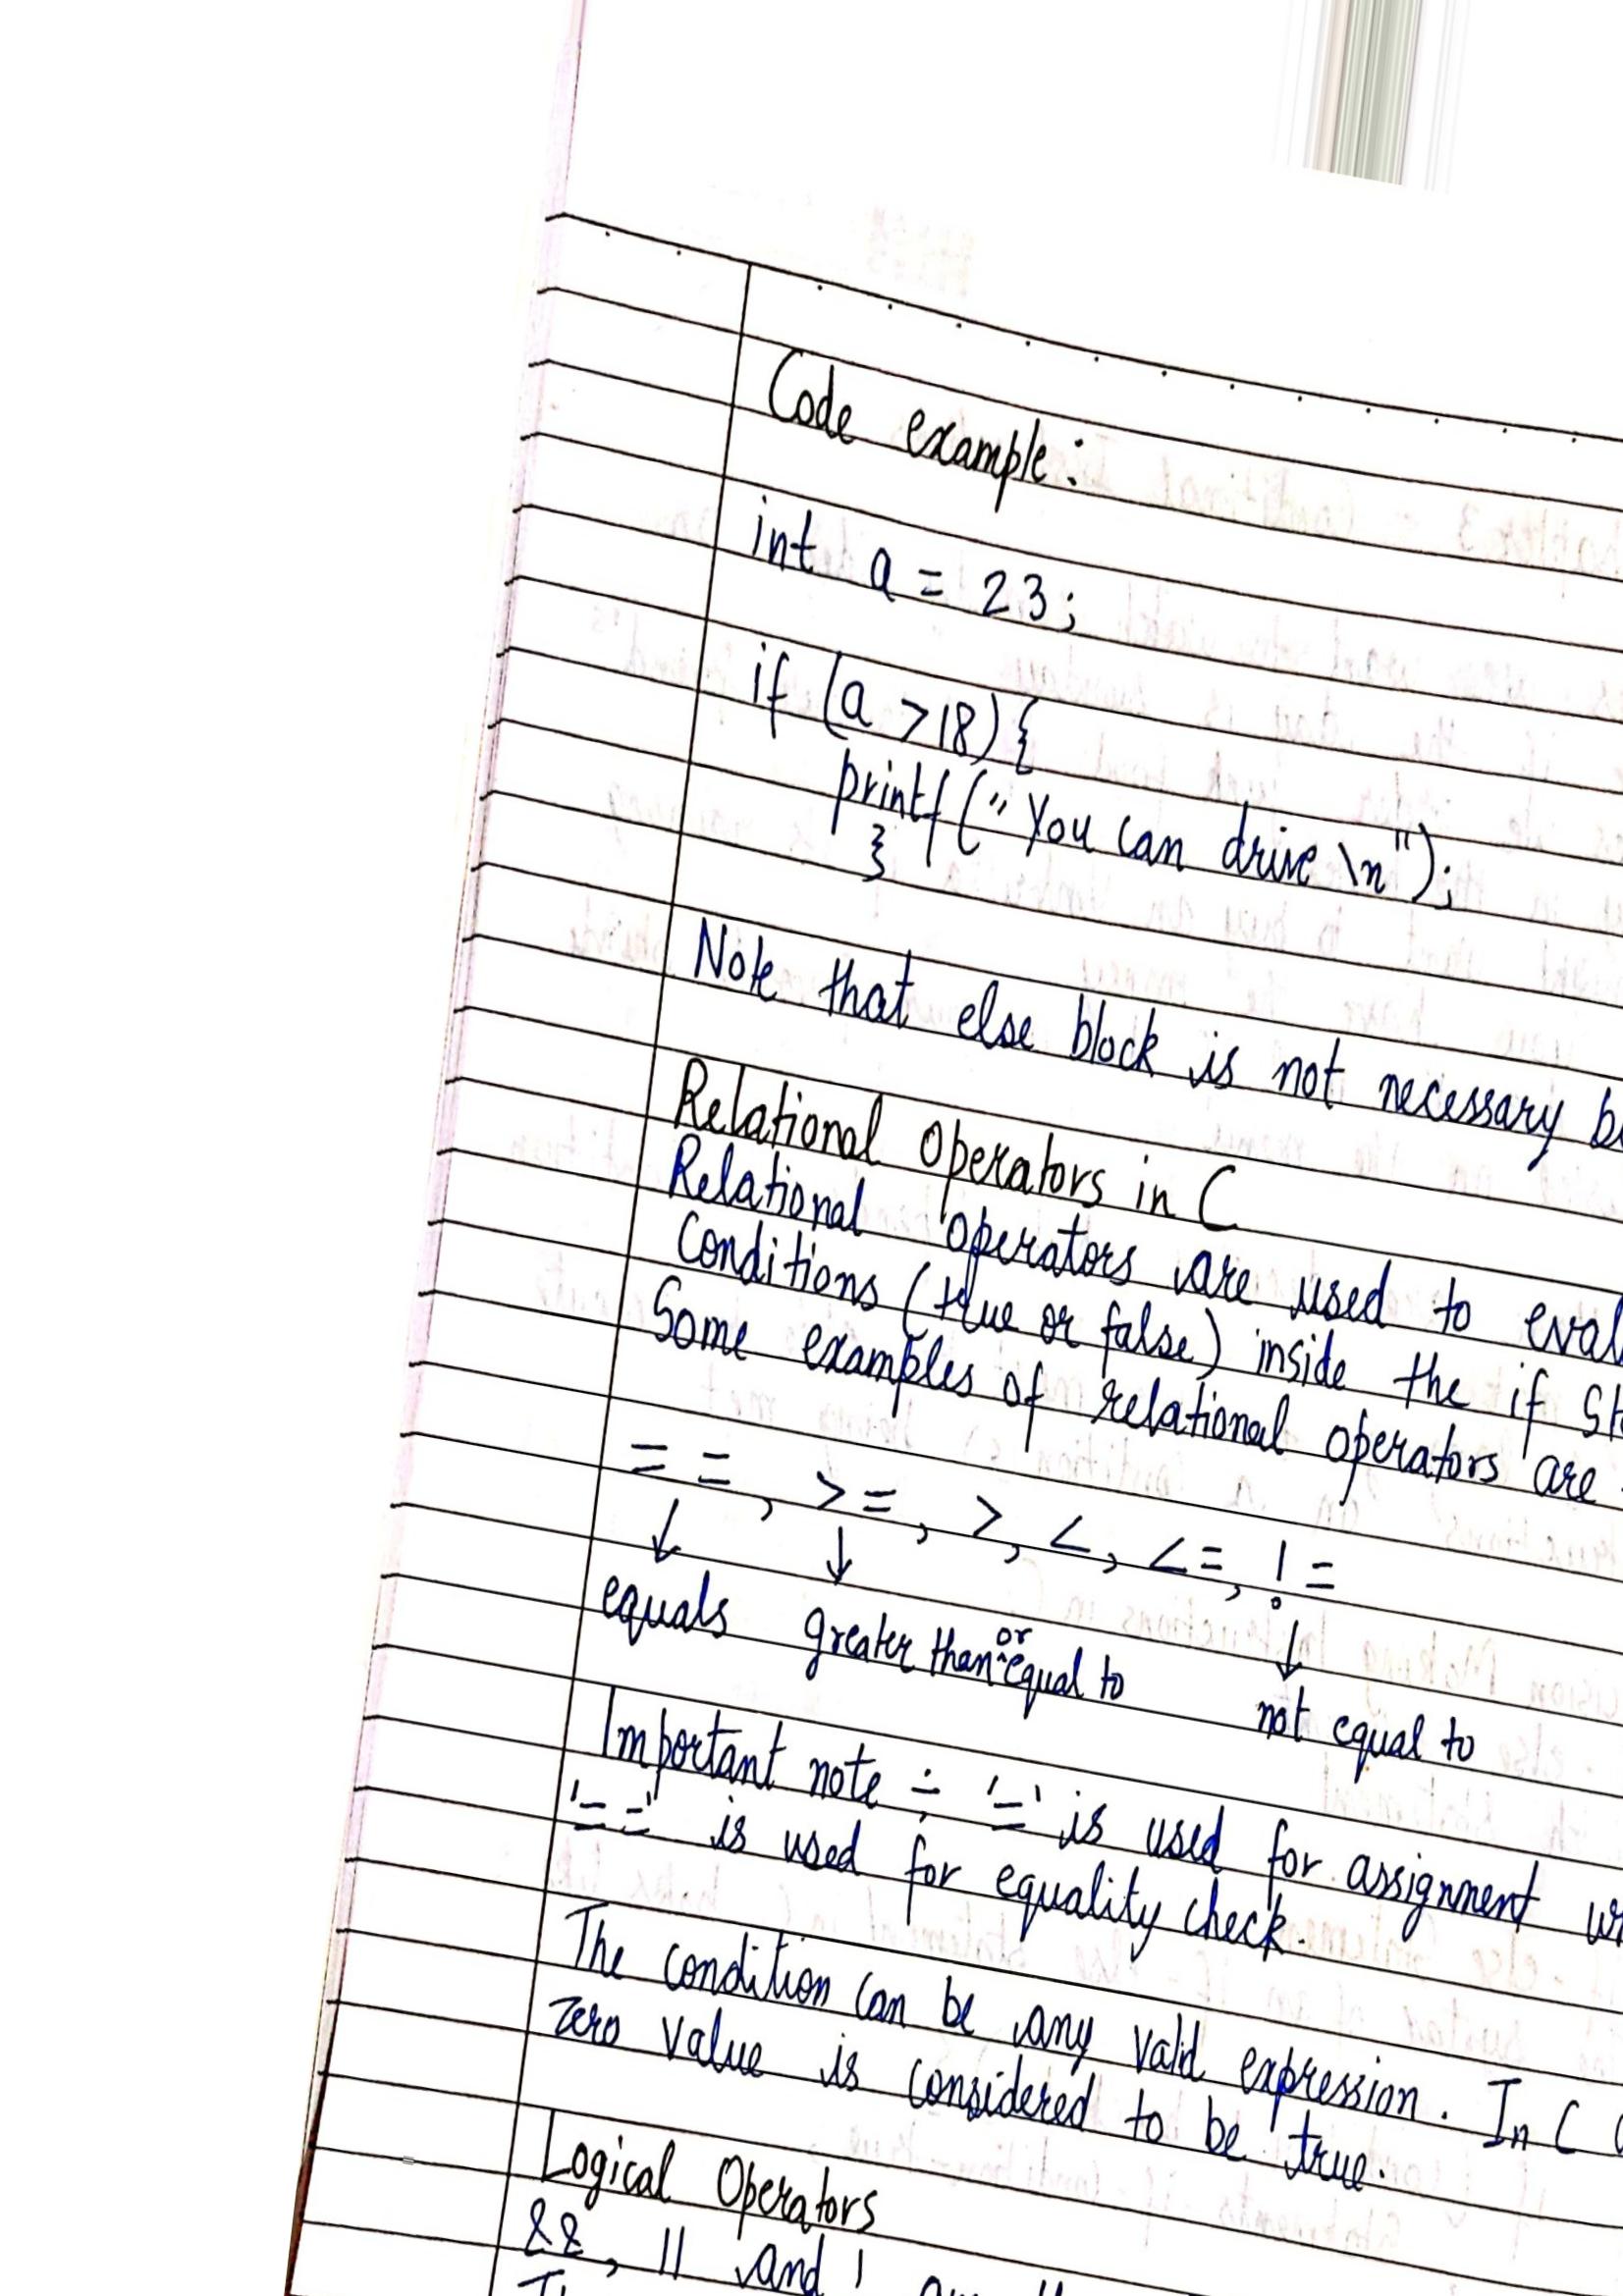 Code example:
int a = 23;
if (a >18) {
printf ("You can drive \n");
}
Note that else block is not necessary
Relational Operators in C
Relational operators are used to
Conditions (true or false) inside the if
Some examples of relational operators are
==, >=, >, <, <=, !=
↓ ↓ ↓
equals greater than or equal to not equal to
Important note ÷ '=' is used for assignment
'==' is used for equality check.
The condition can be any valid expression. In C
zero value is considered to be true.
Logical Operators
&&, || and !